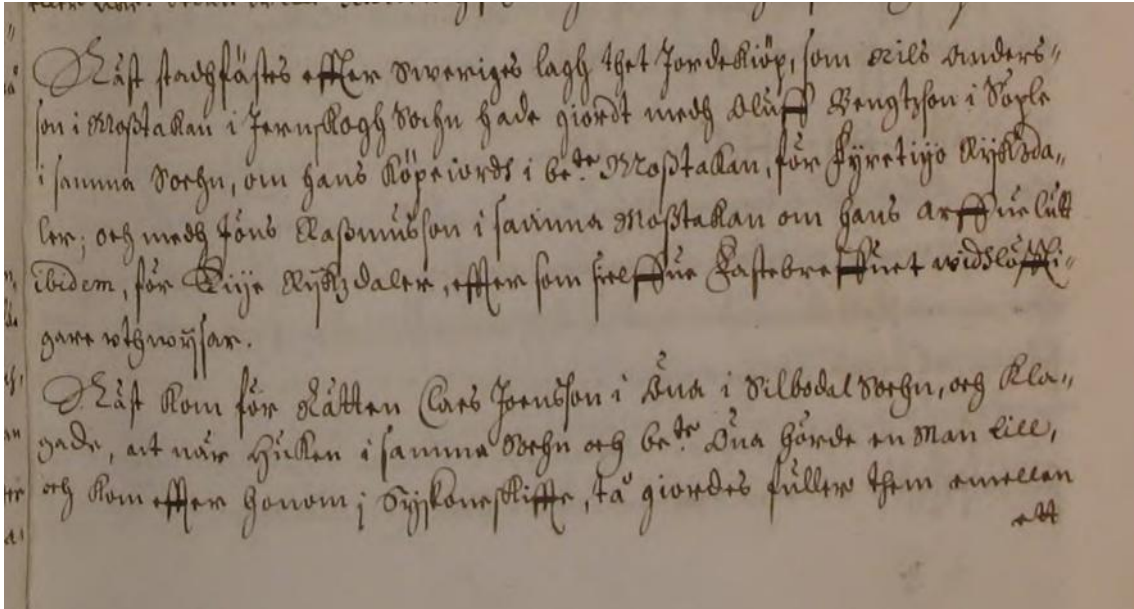 Näst stadhfästes effter Sweriges lagh thet Jordekiöp, som Nils Anders-
son i Moßtakan i Jernskogh Sochn hade giordt medh Oluff Bengtzson i Sögle
i samma Sochn, om hans köpeiordt i be:te Moßtakan, för Fyretiyo Rijkzda-
ler, och medh Jöns Raßmusson i samma Moßtakan om hans arffuelått
ibidem, för Tiije Rijkzdaler, effter som sielffue Fastebreffuet widhlöffti-
gare uthwijsar.
Näst kom för Rätten Claes Joensson i Åna i Silbodal Sochn, och kla-
gade, att när Huken i samma Sochn och be:te Åna hörde en Man till,
och kom effter honom i Syskoneskiffte, tå giordes fuller them emellan
ett